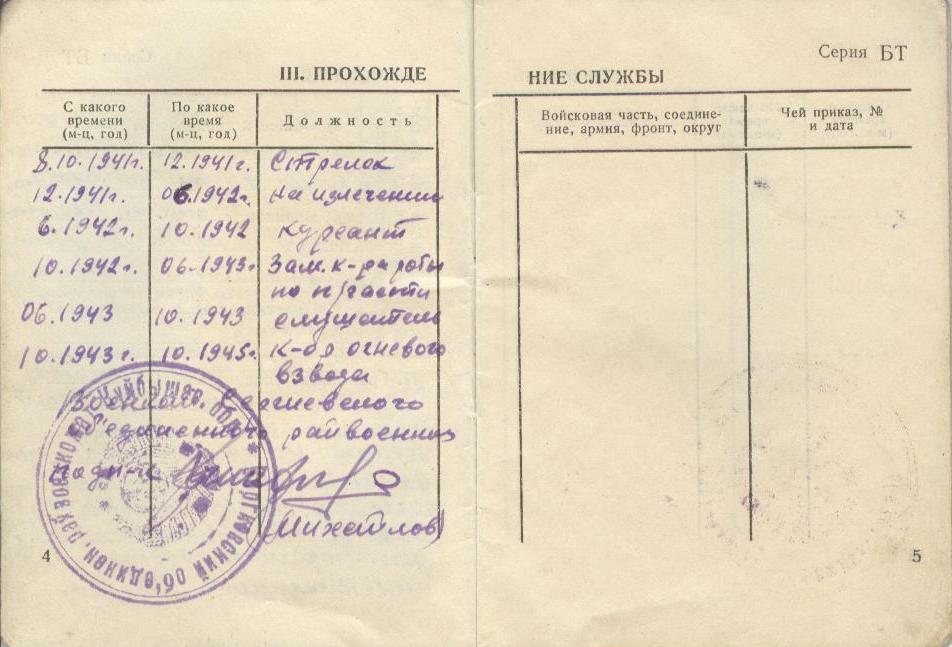 Серия БТ
III. ПРОХОЖДЕ
НИЕ СЛУЖБЫ
С какого времени (м-ц, год)
По какое время (м-ц, год)
Должность
Войсковая часть, соедине-
ние, армия, фронт, округ
Чей приказ, №
и дата
8.10.1941г. 12.1941г. Стрелок
12.1941г. 06.1942г. на излечении
6.1942г. 10.1942 курсант
10.1942г. 06.1943г Зам. к-ра роты
по
06.1943 10.1943 слушатель
10.1943г. 10.1945г. к-др огневого
взвода
Военком. Сергиевского
райвоенком
(Михайлов)
4
5